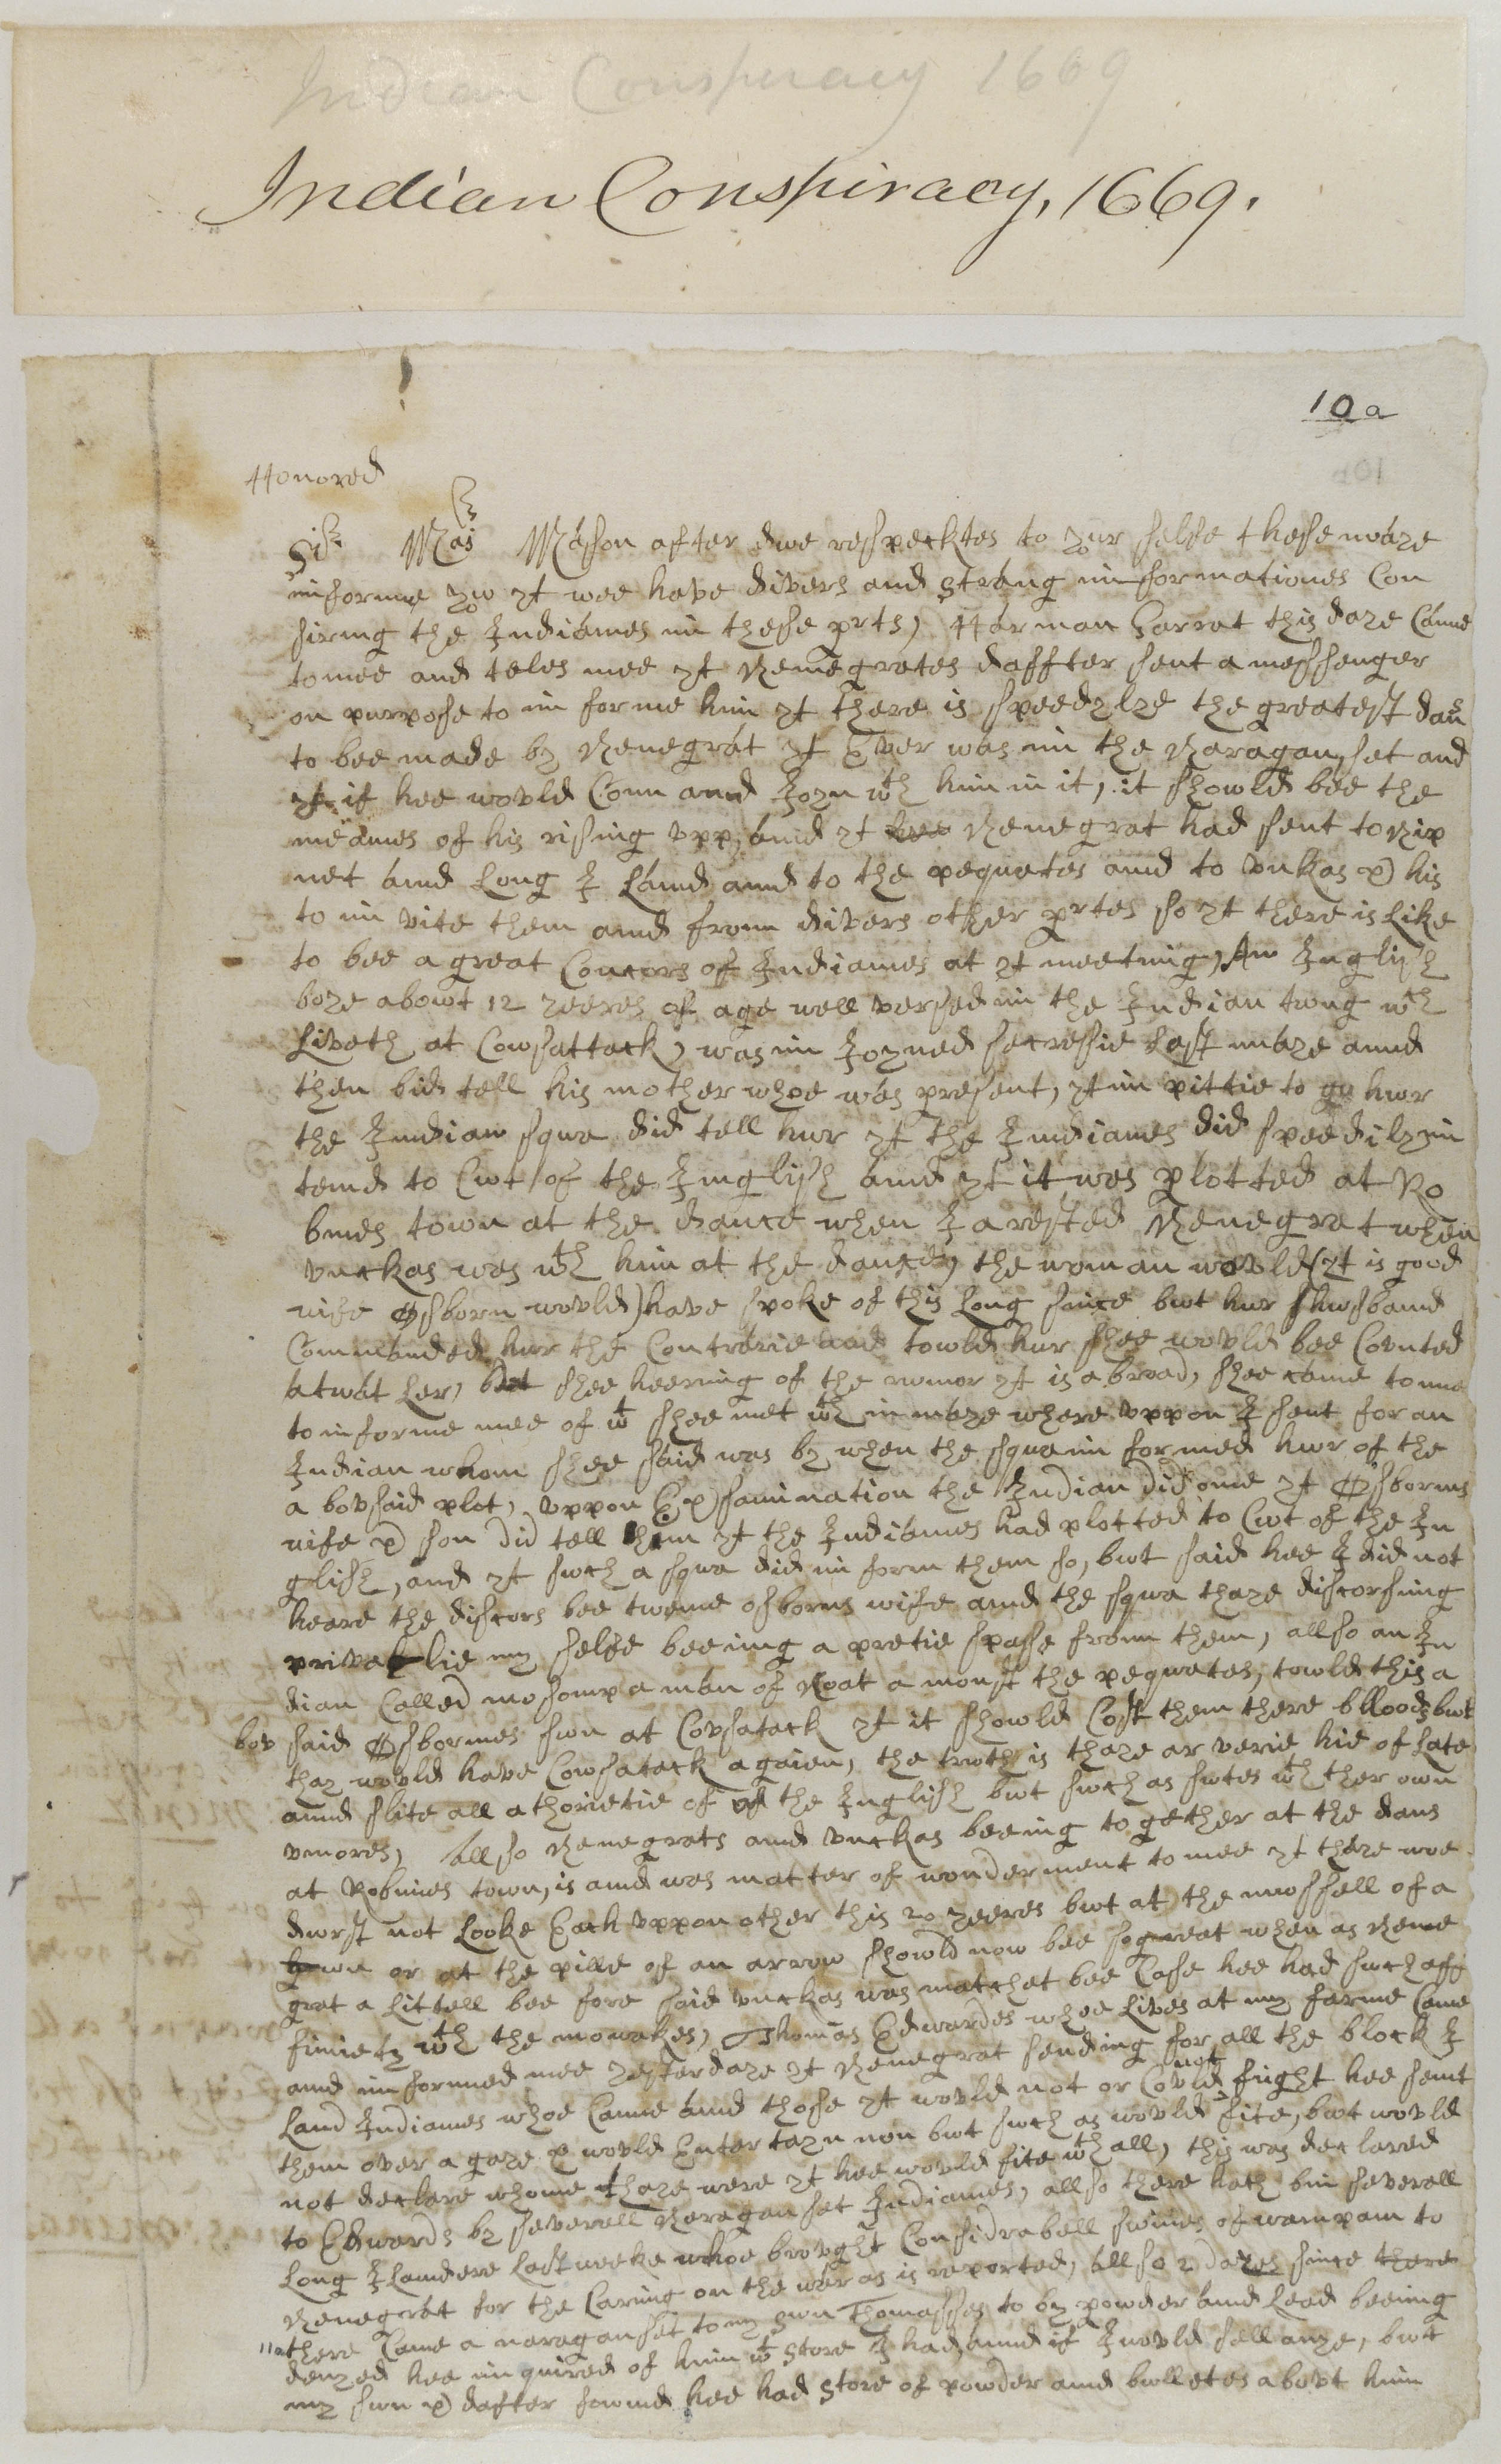 Indian Conspiracy 1669
Indian Conspiracy, 1669.
10a
Honored
Sir Maj Masson after due respecktes to your selfe these maye
informe you yt wee have divers and strang informationes Con
sirnig the Indianes in these prts, Harman Garrat this daye Came
to mee and teles mee yt Nenegrates daffter sent a messenger
on purpose to in forme him yt there is speedylye the greatest dans
to bee made by Nenegrat yt Ever was in the Naragan,set and
yt if hee would Com and Joyn wth him in it, it should bee the
meanes of his rising vpp, and yt hee Nenegrat had sent to Nip
net and Long I Land and to the pequates and to vnkas & his
to in vite them and from divers other prtes so yt there is Like
to bee a great Concors of Indianes at yt meeting, An Inglish
boye about 12 yeeres of age well versed in the Indian tung wch
Liveth at Cowsattack, was in Joyned secressie Last maye and
then did tell his mother whoe was present, yt in pittie to hur
the Indian squa did tell hur yt the Indianes did speedily in
tend to Cut of the Inglish and yt it was plotted at Ro
bines town at the dance when I arested Nenegrat when
vnckas was wth him at the dance, the woman would (yt is good
wife Osborn would) have spoke of this Long since but hur husband
Commanded hur the Contrarie and tould hur shee would bee Counted
a twat ler, but shee heering of the rumor yt is abroad, shee came to mee
to informe mee of wt shee met wth in maye where vppon I sent for an
Indian whom shee said was by when the squa in formed hur of the
a bovsaid plot, vppon Exsamination the Indian did one yt Osborns
wife & son did tell him yt the Indianes had plotted to Cut of the In
glish, and yt such a squa did in form them so, but said hee I did not
heare the discors bee twene osborns wife and the squa thaye discorsing
privatlie my selfe beeing a pretie spase from them, allso an In
dian Called mosomp a man of Noat a monst the pequates, tould this a
bov said Osbornes sun at Covsatack yt it should Cost them there bllood but
thay would have Cowsatack a gaien, the truth is thaye ar verie hie of Late
and slite all athorietie of the Inglish but such as sutes wth ther own
vmores, allso Nenegrats and vnckas beeing to gether at the dans
at Robines town, is and was matter of wonderment to mee yt thaye whoe
durst not Looke Each vppon other this 20 yeeres but at the mussell of a
gun or at the pille of an arrow should now bee so great when as Nene
grat a Littell bee fore said vnckas was matchet bee Case hee had such aff
finiety wth the mowakes, Thomas Edwardes whoe Lives at my farme Came
and informed mee yesterdaye yt Nenegrat sending for all the block I
Land Indianes whoe Came and those yt would not or Could not fight hee sent
them over a gaye & would Enter tayn non but such as would fite, but would
not declare whome thaye were yt hee would fite wth all, this was declared
to Edwards by severall Neragan set Indianes, allso there hath bin severall
Long I Landere Last weeke whoe brought Considrabell sumes of wampam to
Nenegrat for the Caring on the war as is reported, allso 2 dayes since there
there Came a naragan set to my sun Thomasses to by powder and Lead beeing
denyed hee in quired of him wt store I had and if I would sell anye, but
my sun & dafter found hee had store of powder and bulletes about him